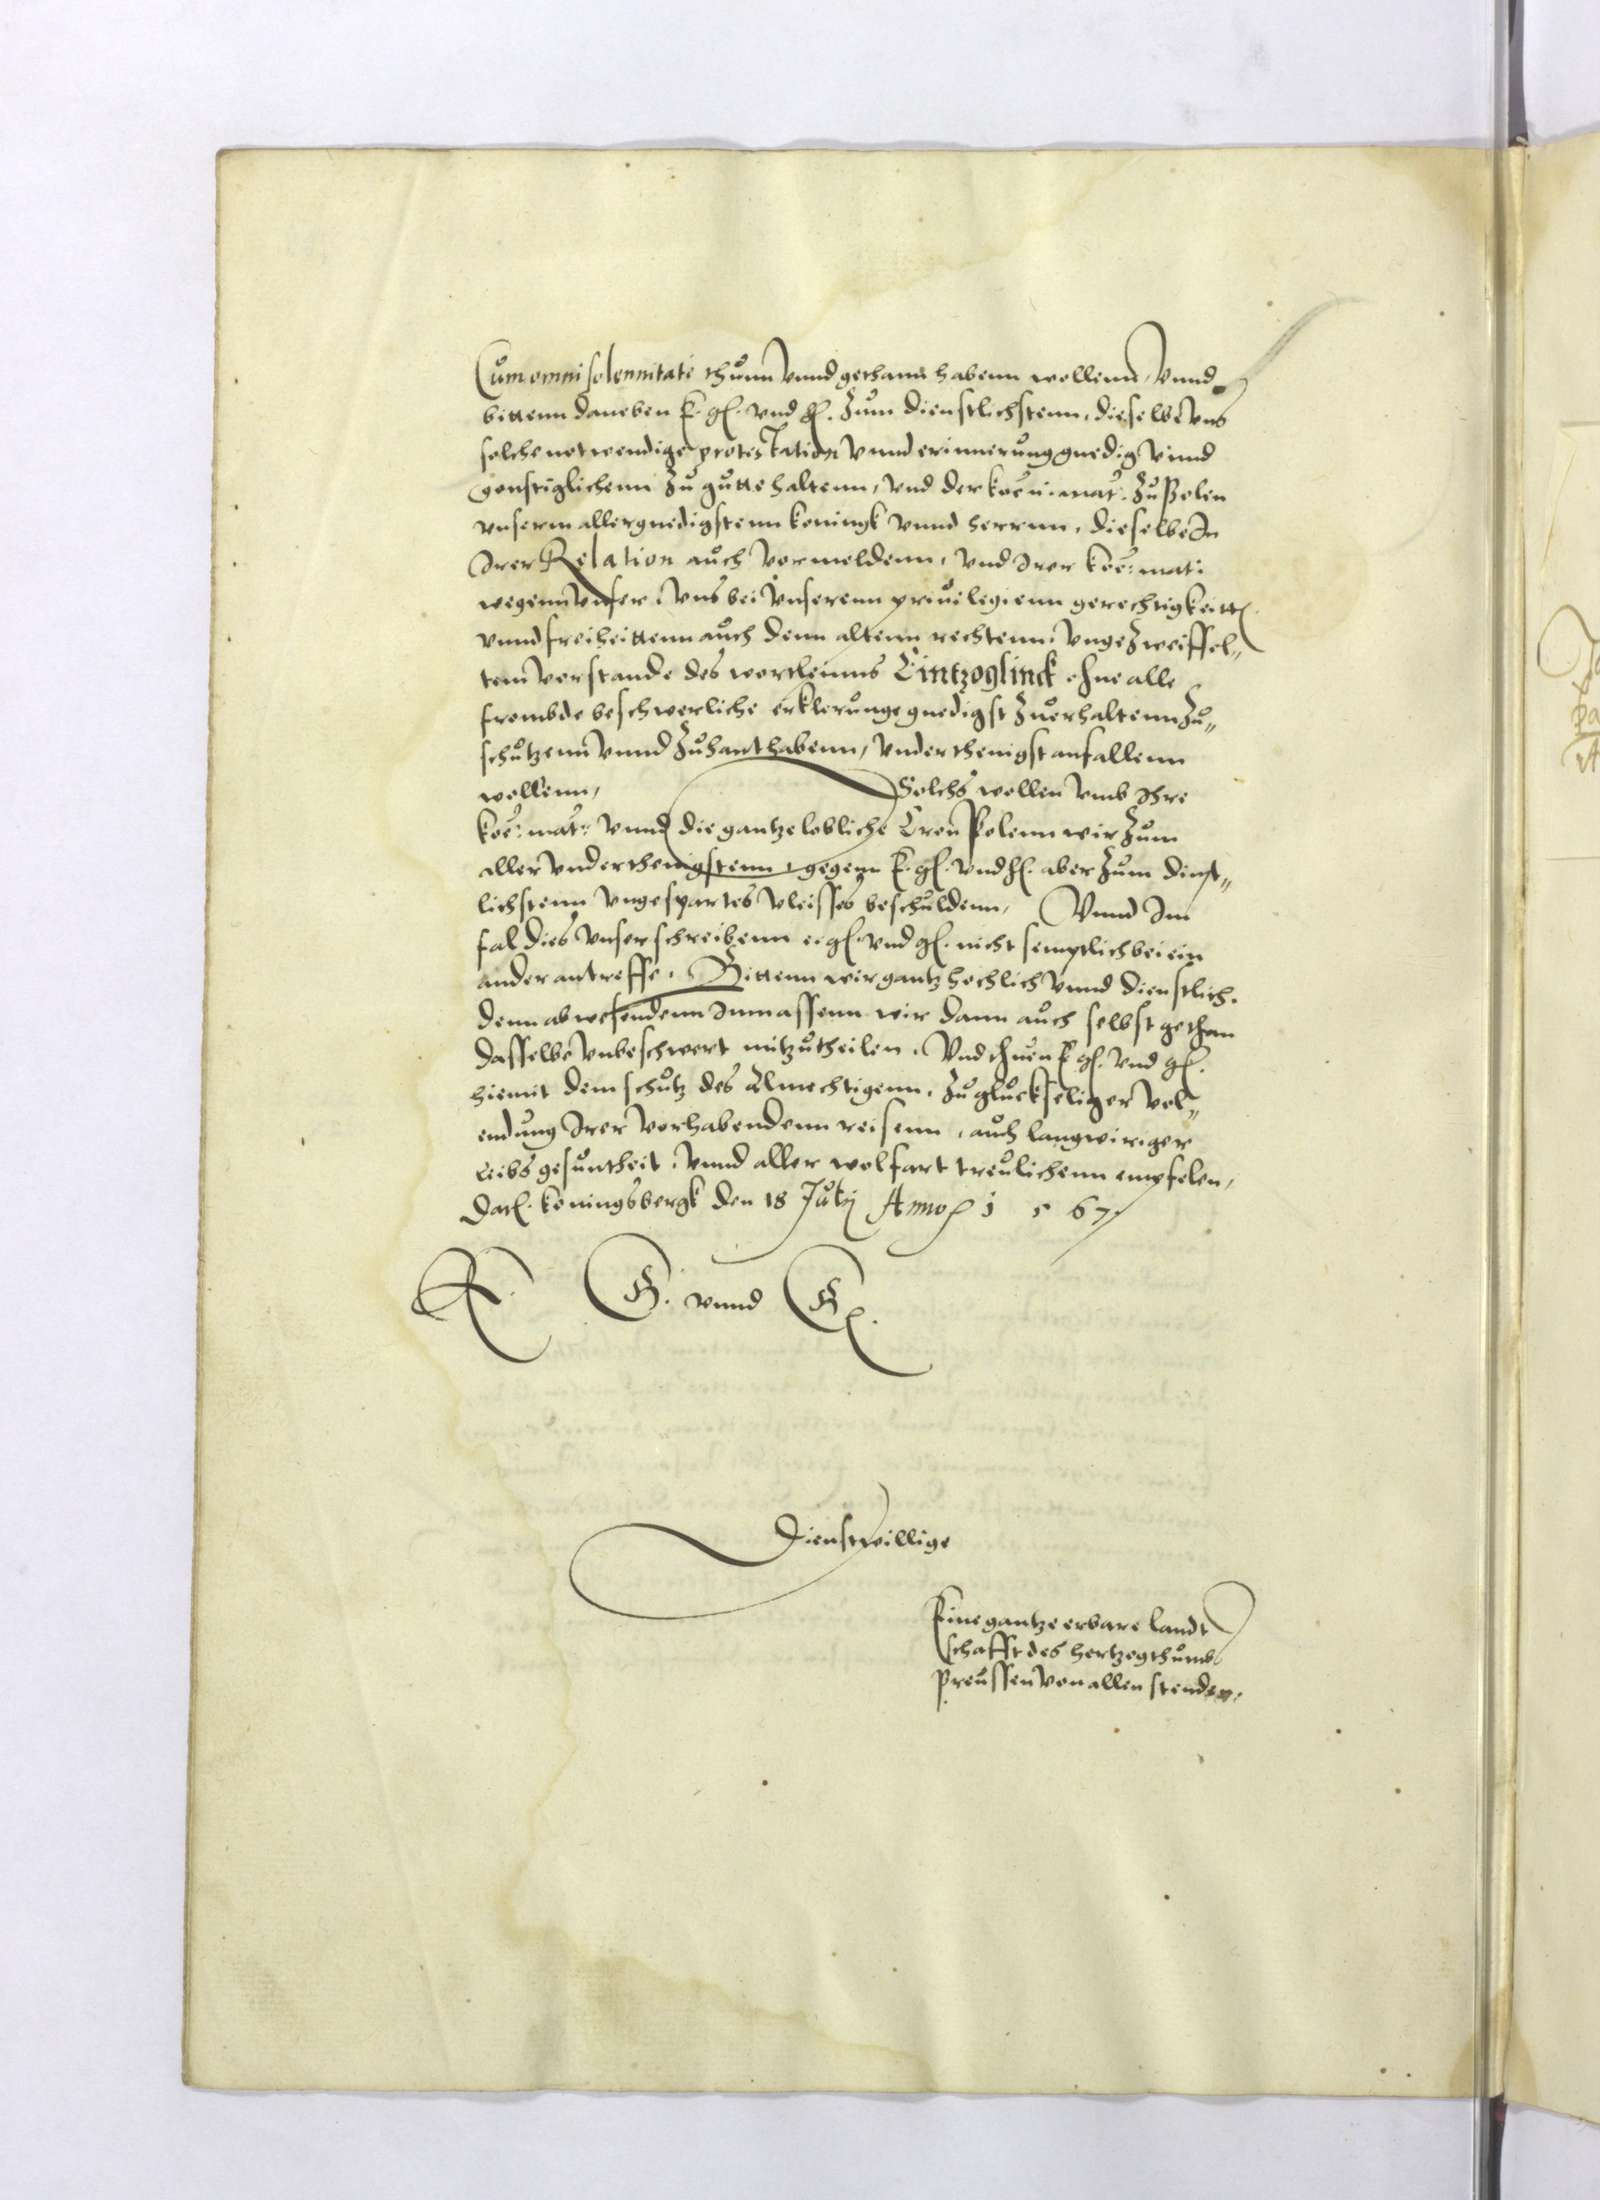 Cum omni solennitate thuen vnnd gethann habenn wollenn, vnnd
bittenn daneben E. g. vnd g. zum dienstlichstenn, dieselbe vns
solche notwendige protestation vnnd erinnerung gnedig vnnd
gonstiglichenn zu gutte haltenn, vnd der koe: mat: zu Polen
vnserm allergnedigstenn koningk vnnd herrnn, dieselbe In
Irer Relation auch vormeldenn, vnd Irer koe: mat:
wegenn vnser, vns bei vnserenn priuilegienn gerechtigkeitt
vnnd freiheittenn auch denn altenn rechtenn vngezweiffel„
tenn vorstande des wortleinns Eintzoglinck ohne alle
frembde beschwerliche erklerunge gnedigst zuerhaltenn zu„
schutzenn vnnd zuhanthabenn, vnderthenigst anfallenn
wollenn, Solchs wollen vmb Ihre
koe: mat: vnnd die gantze lobliche Cron Polenn wir zum
aller vnderthenigstenn, gegenn E. g. vnd g. aber zum dinst„
lichstenn vngespartes vleisses beschuldenn, Vnnd Im
fal dies vnser schreibenn e. g. vnd g. nicht semptlich bei ein
ander antreffe, Bittenn wir gantz hochlich vnnd dienstlich,
denn abwesendenn Inmassenn wir dann auch selbst gethan
dasselbe vnbeschwert mitzutheilen, Vnd thuen E. g. vnd g.
hiemit dem schutz des Almechtigenn, zu gluckseliger vol„
endung Irer vorhabendenn reisenn, auch langwiriger
leibs gesuntheit, vnnd aller wolfart treulichenn empfelen,
Dat. Koningsbergk den 18 July Anno 1567
E. G. vnnd G.
Dienstwillige
Eine gantze erbare landt
schafft des hertzogthumbs
Preussen von allen stenden.